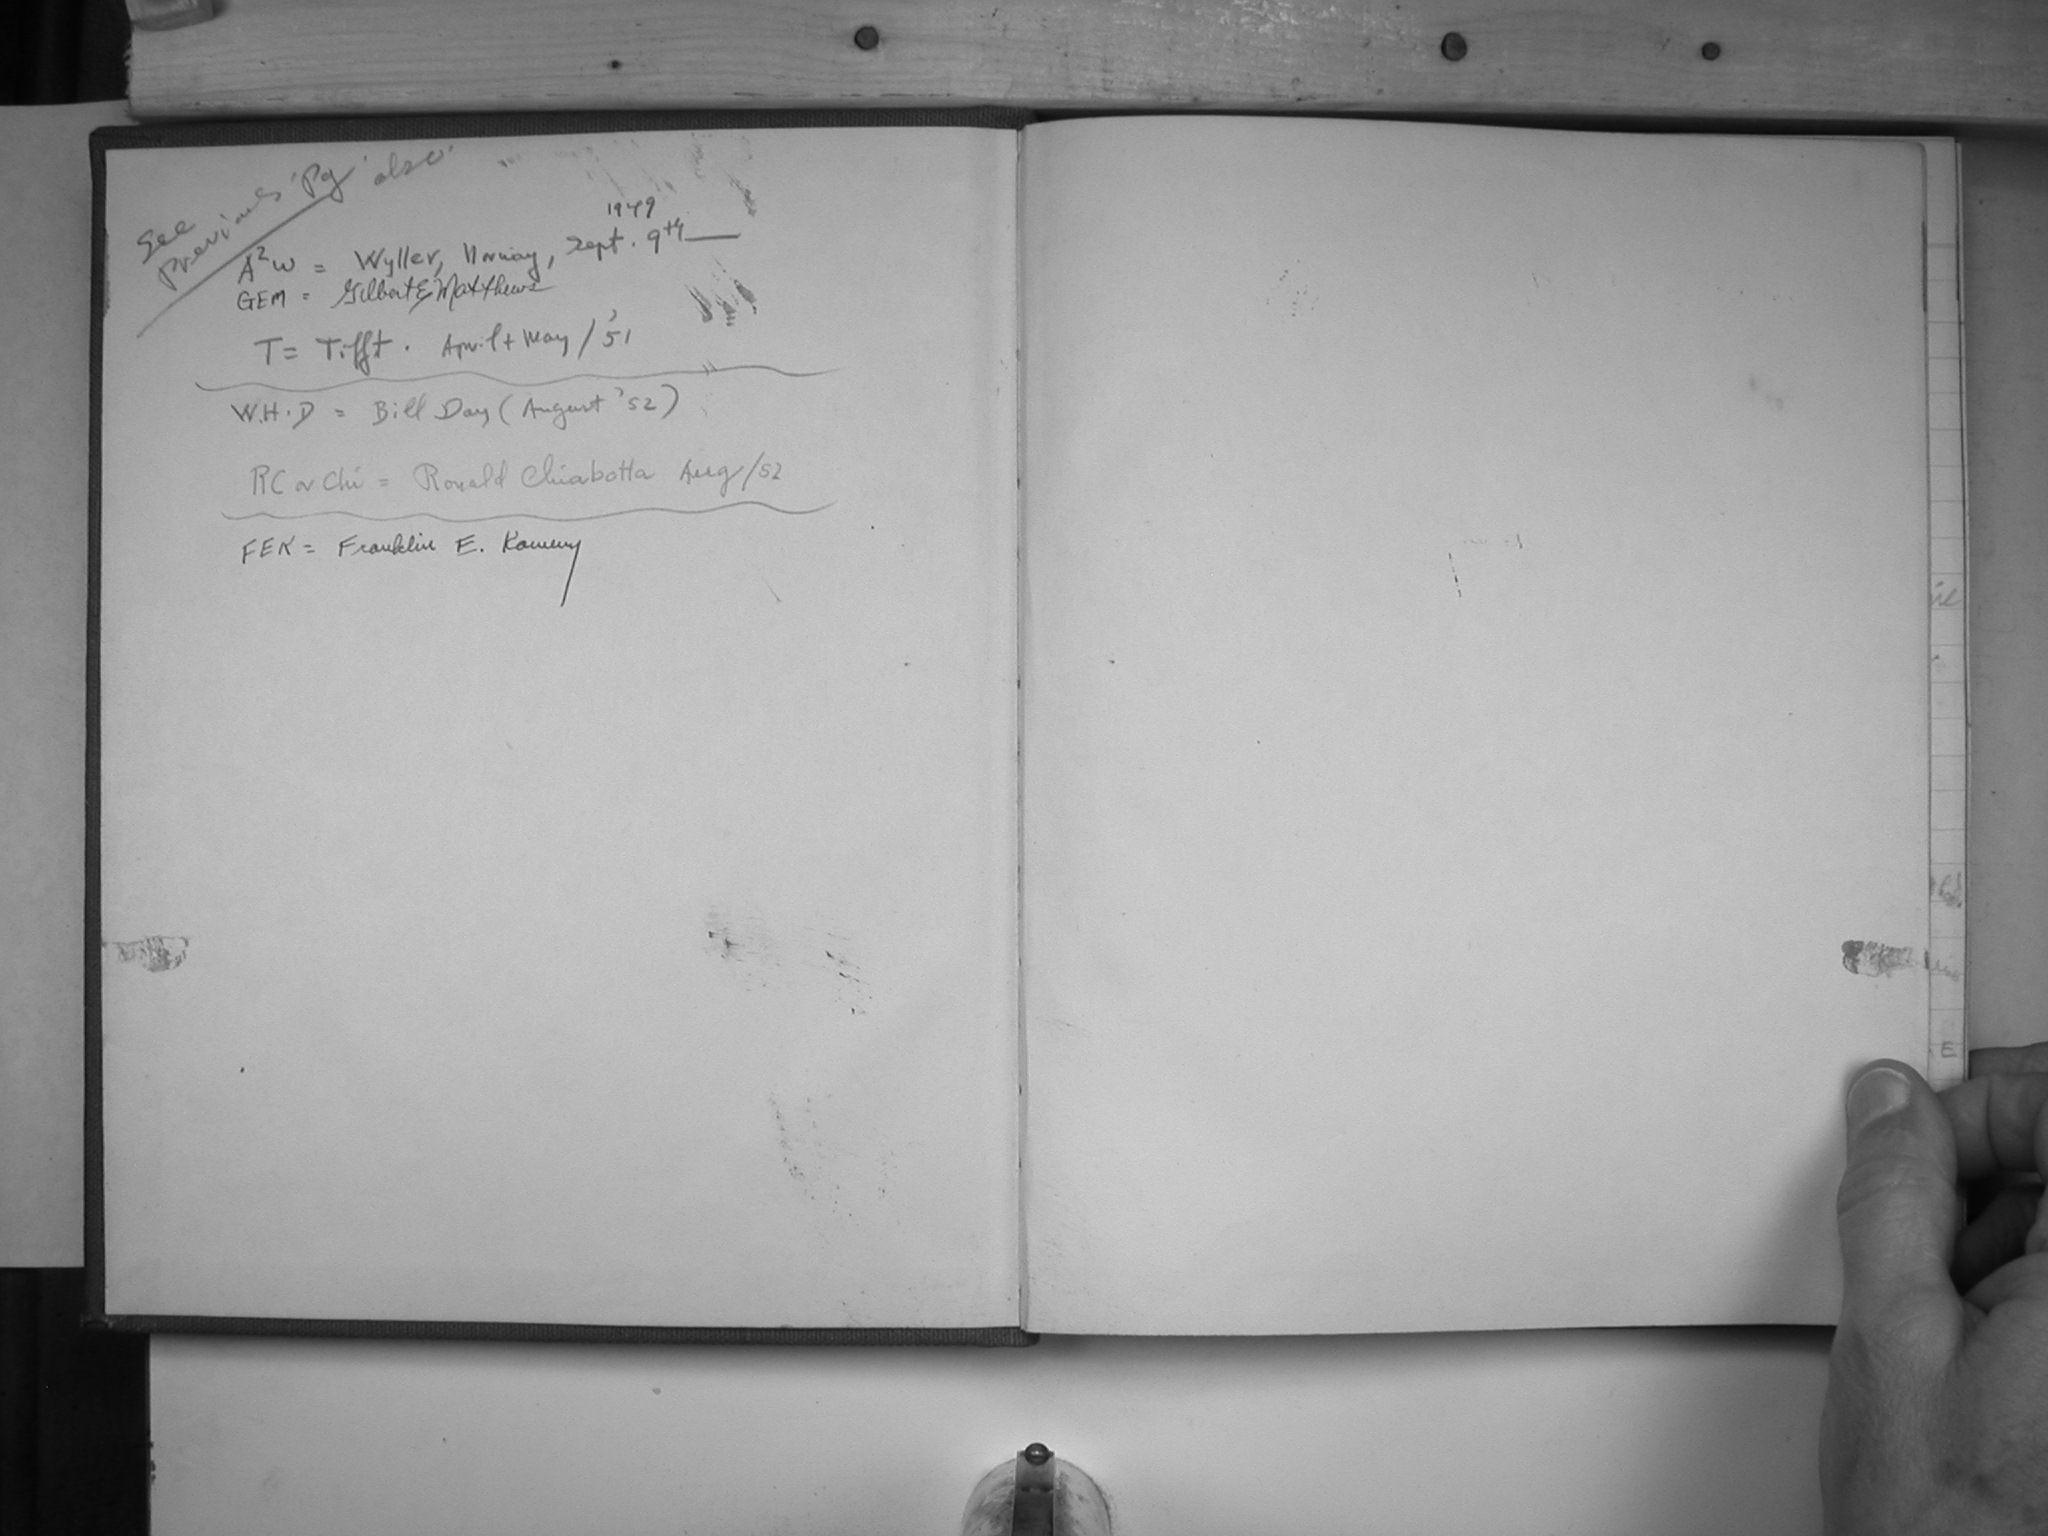 See
Previous 'Pg' also.
1949
A²W = Wyller, Norway, Sept. 9th —
GEM = Gilbert E Matthews
T = Tifft. April + May / '51
W.H.D = Bill Day (August '52)
RC or Chi = Ronald Chiabotta Aug/52
FEK = Franklin E. Kameny
E